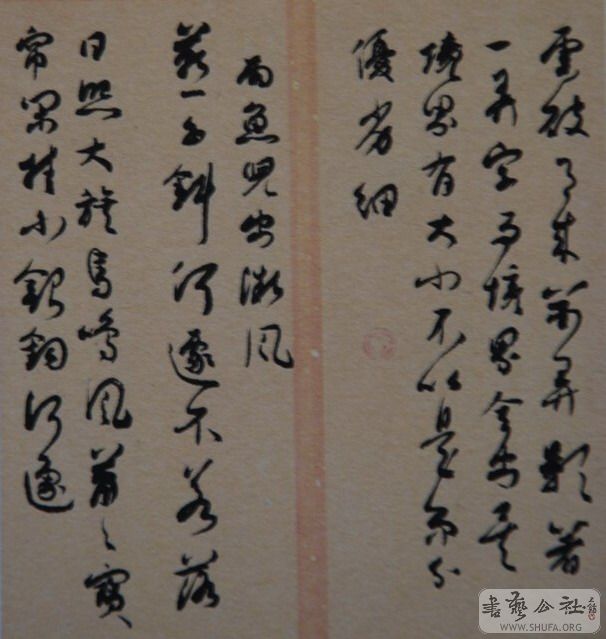 雲破月来花弄影著
一弄字而境界全出矣
境界有大小不以是而分
優劣細
雨魚兒出微風
燕子斜何遽不若落
日照大旗馬鳴風蕭々寶
帘閒挂小銀鉤何遽
書藝公社
WWW.SHUFA.ORG